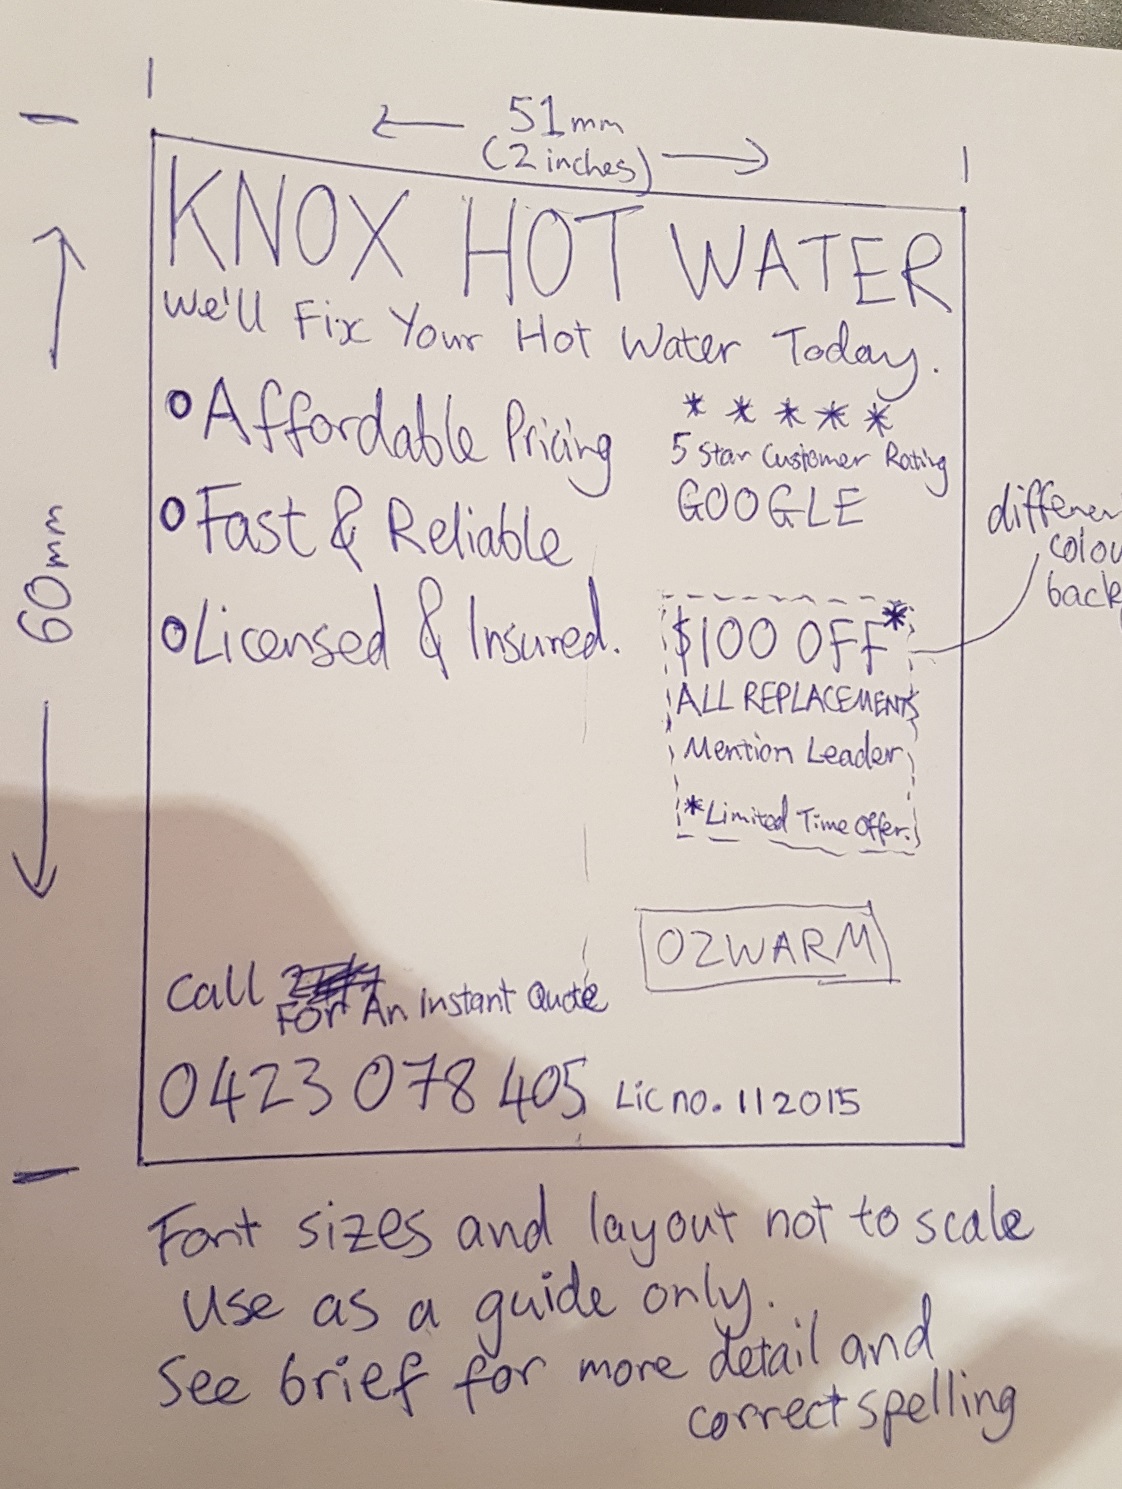 51mm
(2 inches)
60mm
KNOX HOT WATER
We'll Fix Your Hot Water Today.
Affordable Pricing
Fast & Reliable
Licensed & Insured.
* * * * *
5 Star Customer Rating
GOOGLE
differen
colou
back
$100 OFF*
ALL REPLACEMENTS
Mention Leader
*Limited Time Offer.
OZWARM
Call
For An Instant Quote
0423 078 405 Lic no. 112015
Font sizes and layout not to scale
Use as a guide only.
See brief for more detail and
correct spelling